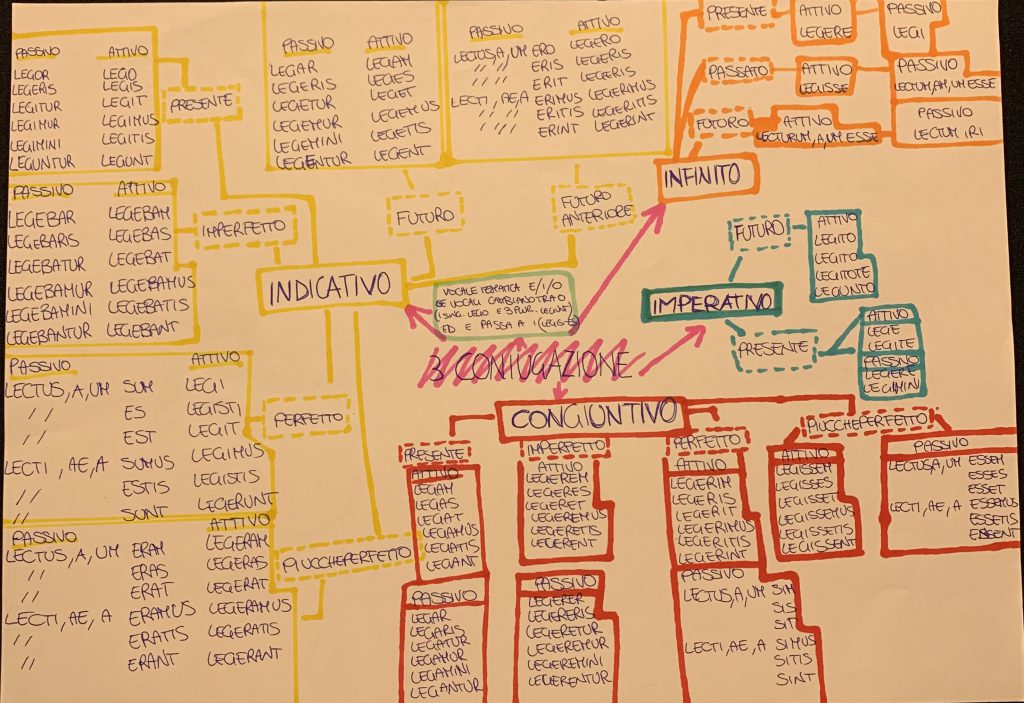 PASSIVO ATTIVO
LEGOR LEGO
LEGERIS LEGIS
LEGITUR LEGIT
LEGIMUR LEGIMUS
LEGIMINI LEGITIS
LEGUNTUR LEGUNT
PRESENTE
PASSIVO ATTIVO
LEGEBAR LEGEBAM
LEGEBARIS LEGEBAS
LEGEBATUR LEGEBAT
LEGEBAMUR LEGEBAMUS
LEGEBAMINI LEGEBATIS
LEGEBANTUR LEGEBANT
IMPERFETTO
PASSIVO ATTIVO
LECTUS,A,UM SUM LEGI
// ES LEGISTI
// EST LEGIT
LECTI ,AE,A SUMUS LEGIMUS
// ESTIS LEGISTIS
// SUNT LEGERUNT
PERFETTO
PASSIVO ATTIVO
LECTUS,A,UM ERAM LEGERAM
// ERAS LEGERAS
// ERAT LEGERAT
LECTI, AE, A ERAMUS LEGERAMUS
// ERATIS LEGERATIS
// ERANT LEGERANT
PIUCCHEPERFETTO
PASSIVO ATTIVO
LEGAR LEGAM
LEGERIS LEGES
LEGETUR LEGET
LEGEMUR LEGEMUS
LEGEMINI LEGETIS
LEGENTUR LEGENT
FUTURO
PASSIVO ATTIVO
LECTUS,A,UM ERO LEGERO
// // ERIS LEGERIS
// // ERIT LEGERIS
LECTI, AE,A ERIMUS LEGERIMUS
// // ERITIS LEGERITIS
// // ERINT LEGERINT
FUTURO
ANTERIORE
INDICATIVO
VOCALE TEMATICA E/I/O
LE VOCALI CAMBIANO TRA O
(1 SING. LEGO E 3 PLUR. LEGUNT)
ED E PASSA A I (LEGIS)
3 CONIUGAZIONE
INFINITO
PRESENTE
ATTIVO
LEGERE
PASSIVO
LEGI
PASSATO
ATTIVO
LEGISSE
PASSIVO
LECTUM,AM,UM ESSE
FUTURO
ATTIVO
LECTURUM,A,UM ESSE
PASSIVO
LECTUM IRI
IMPERATIVO
FUTURO
ATTIVO
LEGITO
LEGITO
LEGITOTE
LEGUNTO
PRESENTE
ATTIVO
LEGE
LEGITE
PASSIVO
LEGERE
LEGIMINI
CONGIUNTIVO
PRESENTE
ATTIVO
LEGAM
LEGAS
LEGAT
LEGAMUS
LEGATIS
LEGANT
PASSIVO
LEGAR
LEGARIS
LEGATUR
LEGAMUR
LEGAMINI
LEGANTUR
IMPERFETTO
ATTIVO
LEGEREM
LEGERES
LEGERET
LEGEREMUS
LEGERETIS
LEGERENT
PASSIVO
LEGERER
LEGERERIS
LEGERETUR
LEGEREMUR
LEGEREMINI
LEGERENTUR
PERFETTO
ATTIVO
LEGERIM
LEGERIS
LEGERIT
LEGERIMUS
LEGERITIS
LEGERINT
PASSIVO
LECTUS,A,UM SIM
SIS
SIT
LECTI,AE,A SIMUS
SITIS
SINT
PIUCCHEPERFETTO
ATTIVO
LEGISSEM
LEGISSES
LEGISSET
LEGISSEMUS
LEGISSETIS
LEGISSENT
PASSIVO
LECTUS,A,UM ESSEM
ESSES
ESSET
LECTI, AE, A ESSEMUS
ESSETIS
ESSENT